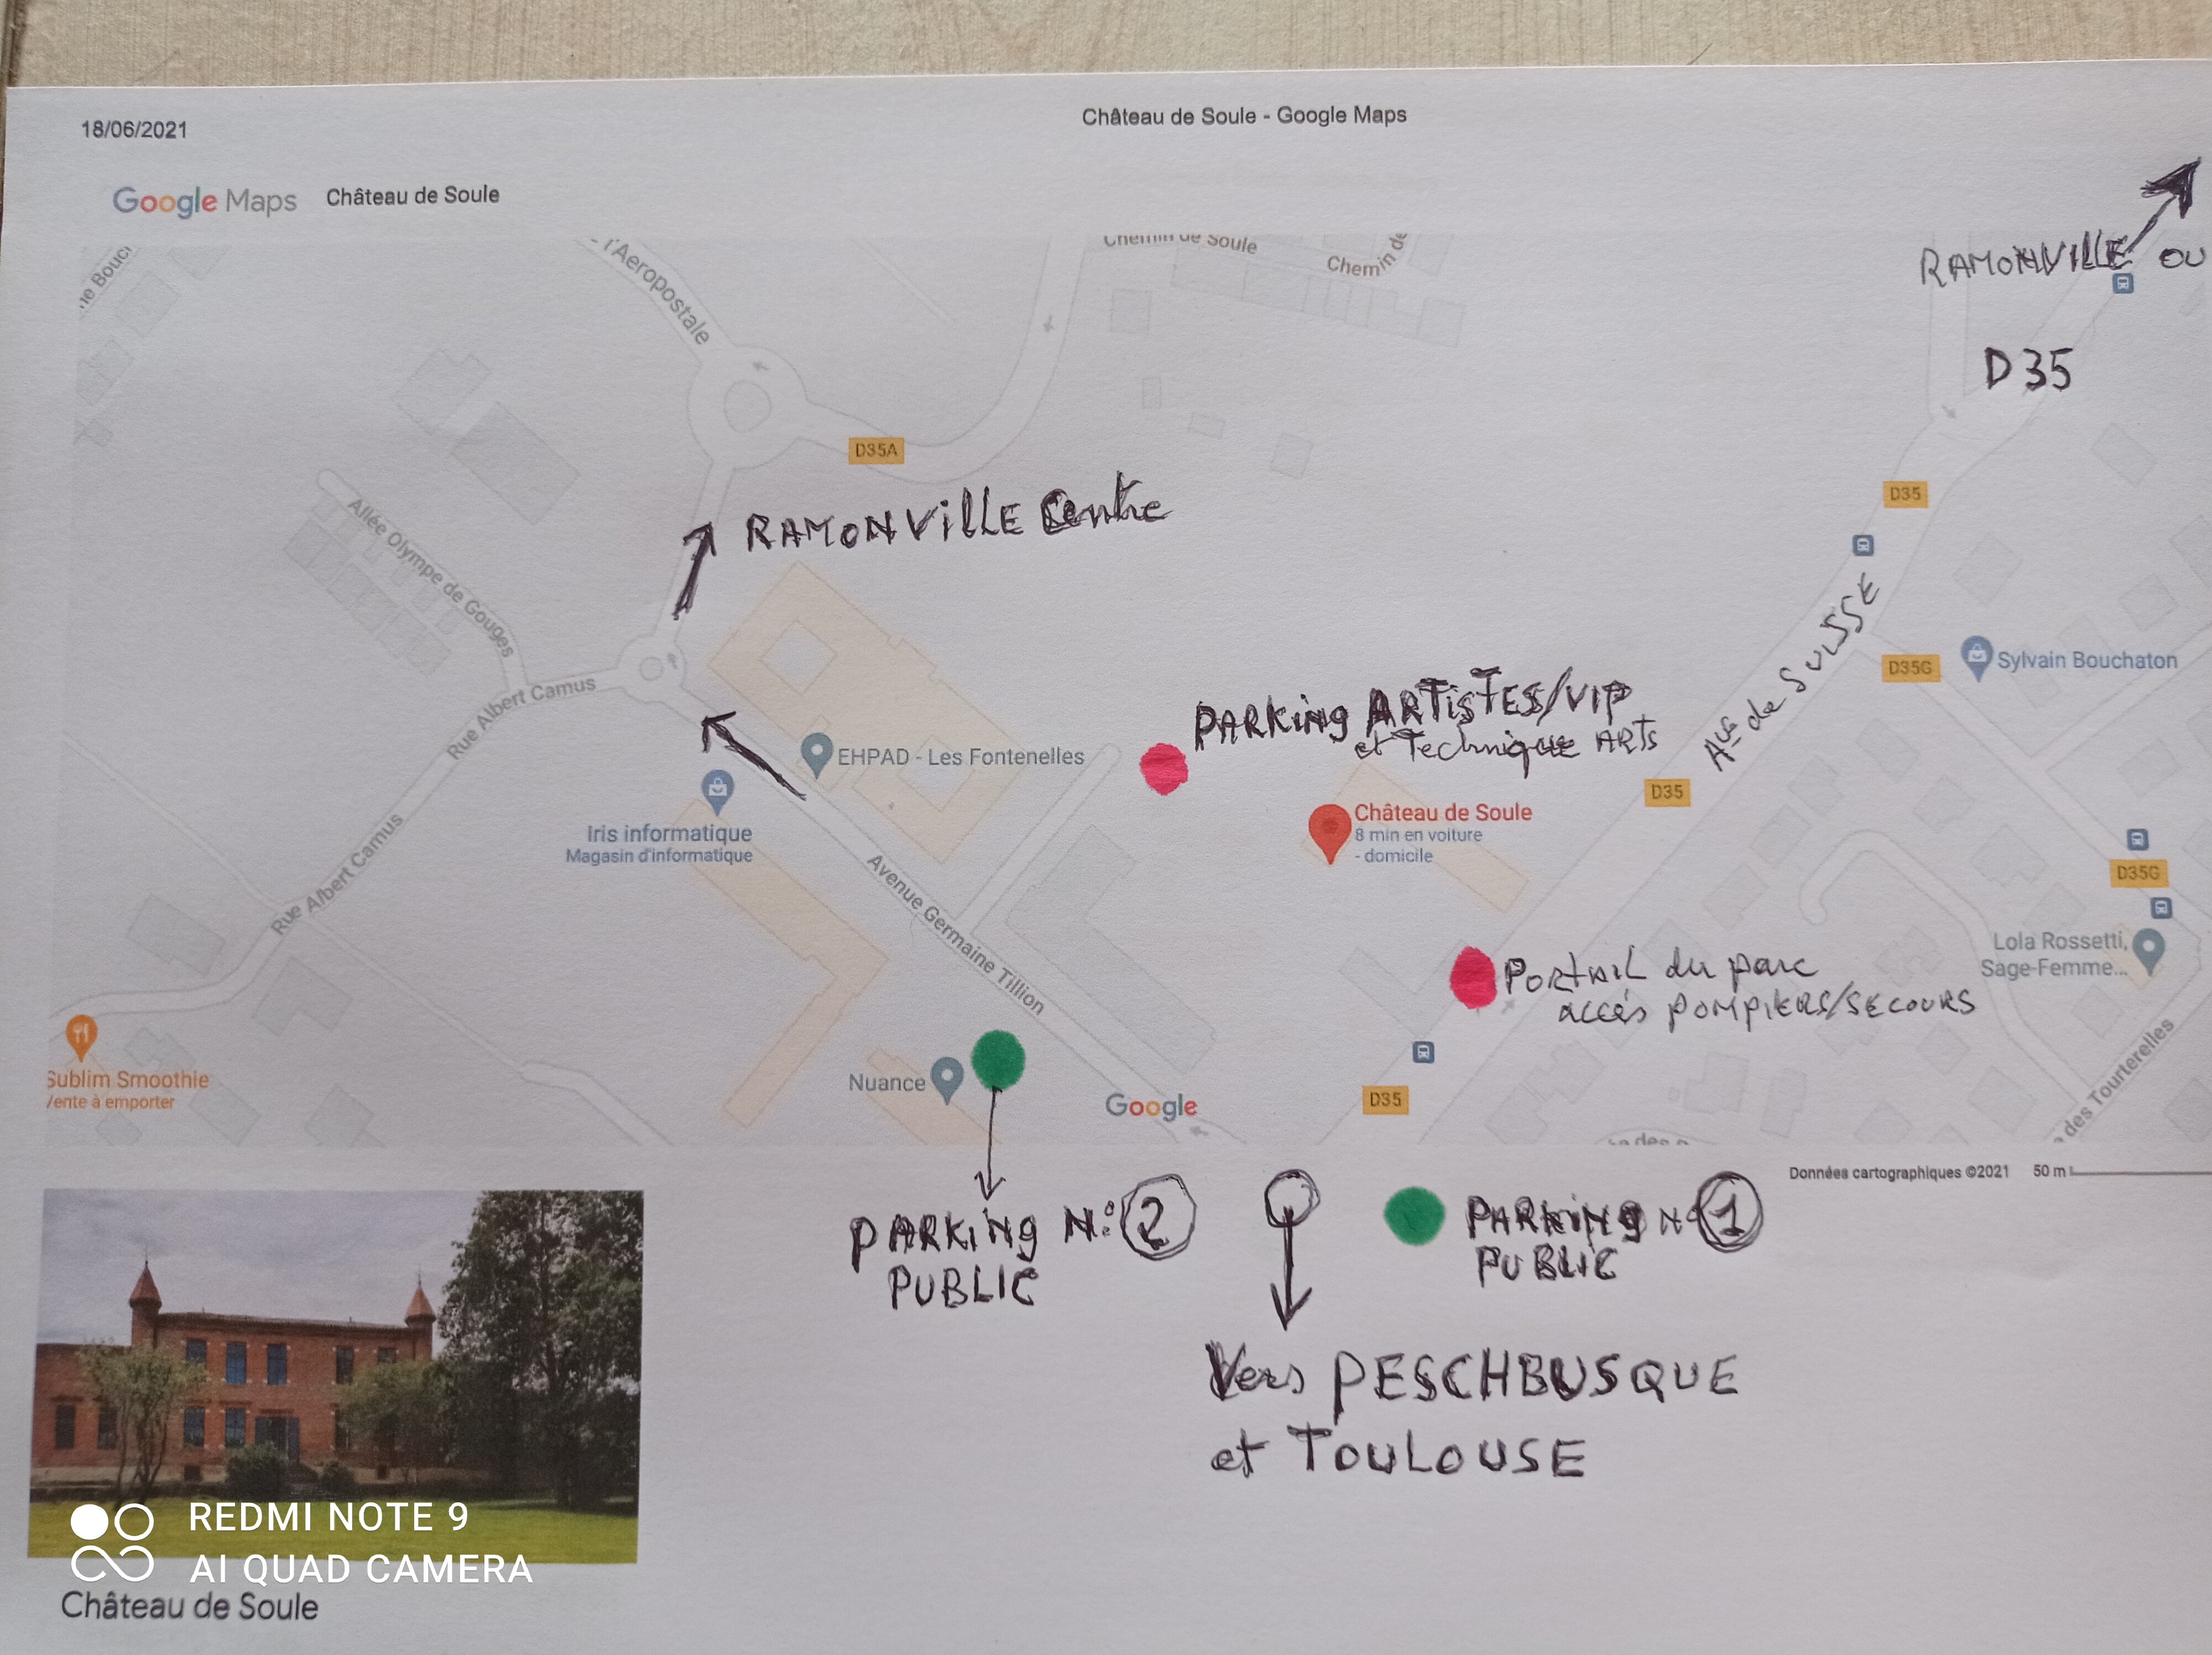 18/06/2021
Château de Soule - Google Maps
Google Maps
Château de Soule
l'Aeropostale
Chemin de Soule
Chemin de
RAMONVILLE OU
D35
D35A
D35
Allée Olympe de Gouges
RAMONVILLE Centre
Rue Albert Camus
Ave de SUISSE
D35G
Sylvain Bouchaton
PARKING ARTISTES/VIP
et Technique ARTS
EHPAD - Les Fontenelles
D35
Château de Soule
8 min en voiture
- domicile
Iris informatique
Magasin d'informatique
Rue Albert Camus
Avenue Germaine Tillion
D35G
Lola Rossetti,
Sage-Femme...
PORTAIL du parc
accès POMPIERS/SECOURS
Sublim Smoothie
Vente à emporter
Nuance
Google
D35
des Tourterelles
Données cartographiques ©2021
50 m
PARKING N° 2
PUBLIC
PARKING N° 1
PUBLIC
Vers PESCHBUSQUE
et TOULOUSE
REDMI NOTE 9
AI QUAD CAMERA
Château de Soule